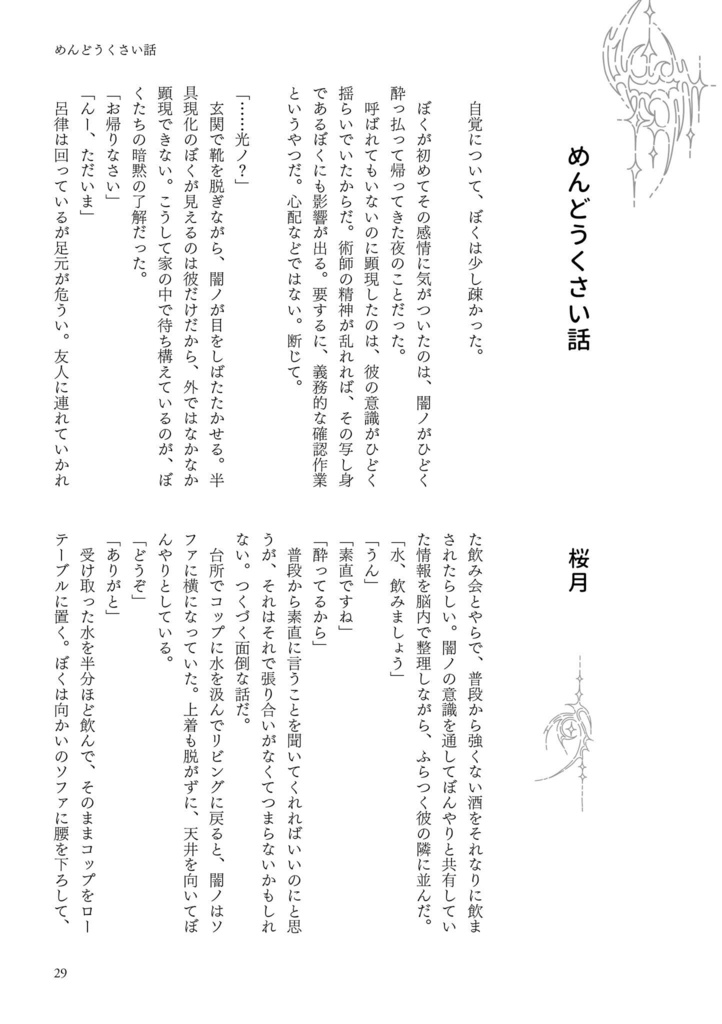 めんどうくさい話
めんどうくさい話
桜月
自覚について、ぼくは少し疎かった。
ぼくが初めてその感情に気がついたのは、闇ノがひどく
酔っ払って帰ってきた夜のことだった。
呼ばれてもいないのに顕現したのは、彼の意識がひどく
揺らいでいたからだ。術師の精神が乱れれば、その写し身
であるぼくにも影響が出る。要するに、義務的な確認作業
というやつだ。心配などではない。断じて。
「……光ノ?」
玄関で靴を脱ぎながら、闇ノが目をしばたたかせる。半
具現化のぼくが見えるのは彼だけだから、外ではなかなか
顕現できない。こうして家の中で待ち構えているのが、ぼ
くたちの暗黙の了解だった。
「お帰りなさい」
「んー、ただいま」
呂律は回っているが足元が危うい。友人に連れていかれ
た飲み会とやらで、普段から強くない酒をそれなりに飲ま
されたらしい。闇ノの意識を通してぼんやりと共有してい
た情報を脳内で整理しながら、ふらつく彼の隣に並んだ。
「水、飲みましょう」
「うん」
「素直ですね」
「酔ってるから」
普段から素直に言うことを聞いてくれればいいのにと思
うが、それはそれで張り合いがなくてつまらないかもしれ
ない。つくづく面倒な話だ。
台所でコップに水を汲んでリビングに戻ると、闇ノはソ
ファに横になっていた。上着も脱がずに、天井を向いてぼ
んやりとしている。
「どうぞ」
「ありがと」
受け取った水を半分ほど飲んで、そのままコップをロー
テーブルに置く。ぼくは向かいのソファに腰を下ろして、
29